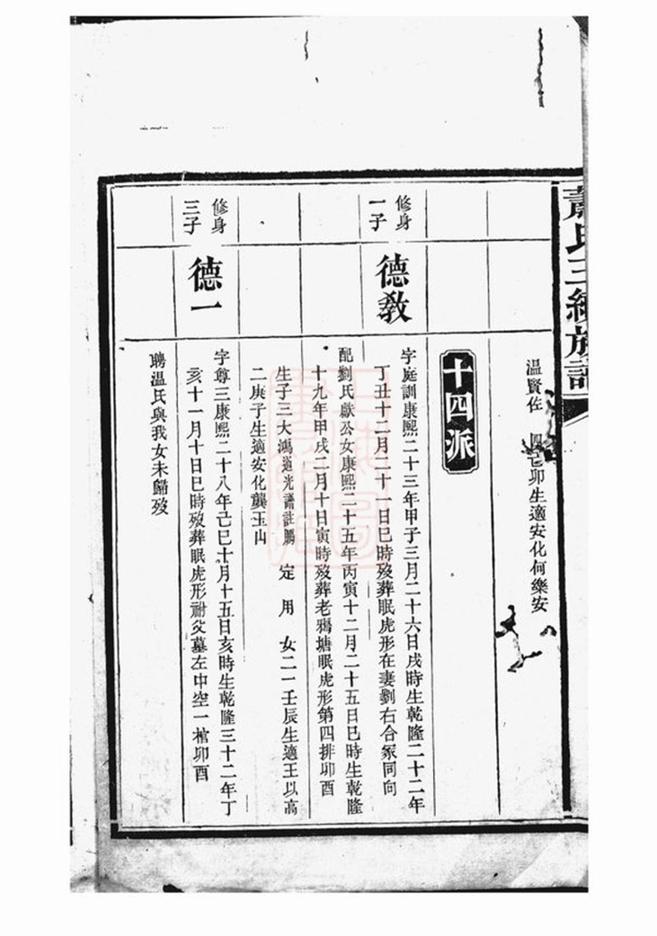 蕭氏三續族譜
溫賢佐 四 卯生適安化何樂安
十四派
修身
一子
德教
字庭訓康熙二十三年甲子三月二十六日戌時生乾隆二十二年
丁丑十二月二十一日巳時歿葬眠虎形在妻劉右合冢同向
配劉氏獻公女康熙二十五年丙寅十二月二十五日巳時生乾隆
十九年甲戌二月十日寅時歿葬老鴉塘眠虎形第四排卯酉
生子三大鴻道光譜註鵬 定 用 女二一壬辰生適王以高
二庚子生適安化龔玉山
修身
三子
德一
字尊三康熙二十八年己巳十月十五日亥時生乾隆三十二年丁
亥十一月十日巳時歿葬眠虎形祔父墓左中空一棺卯酉
聘溫氏與我女未歸歿